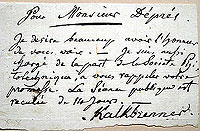 Pour Monsieur Déprés
Je désire beaucoup avoir l'honneur
de vous voir. Je suis aussi
chargé de la part de la Société Po
lytechnique, à vous rappeler votre
promesse. La Séance publique est
reculée de 14 Jours.
Kalkbrenner